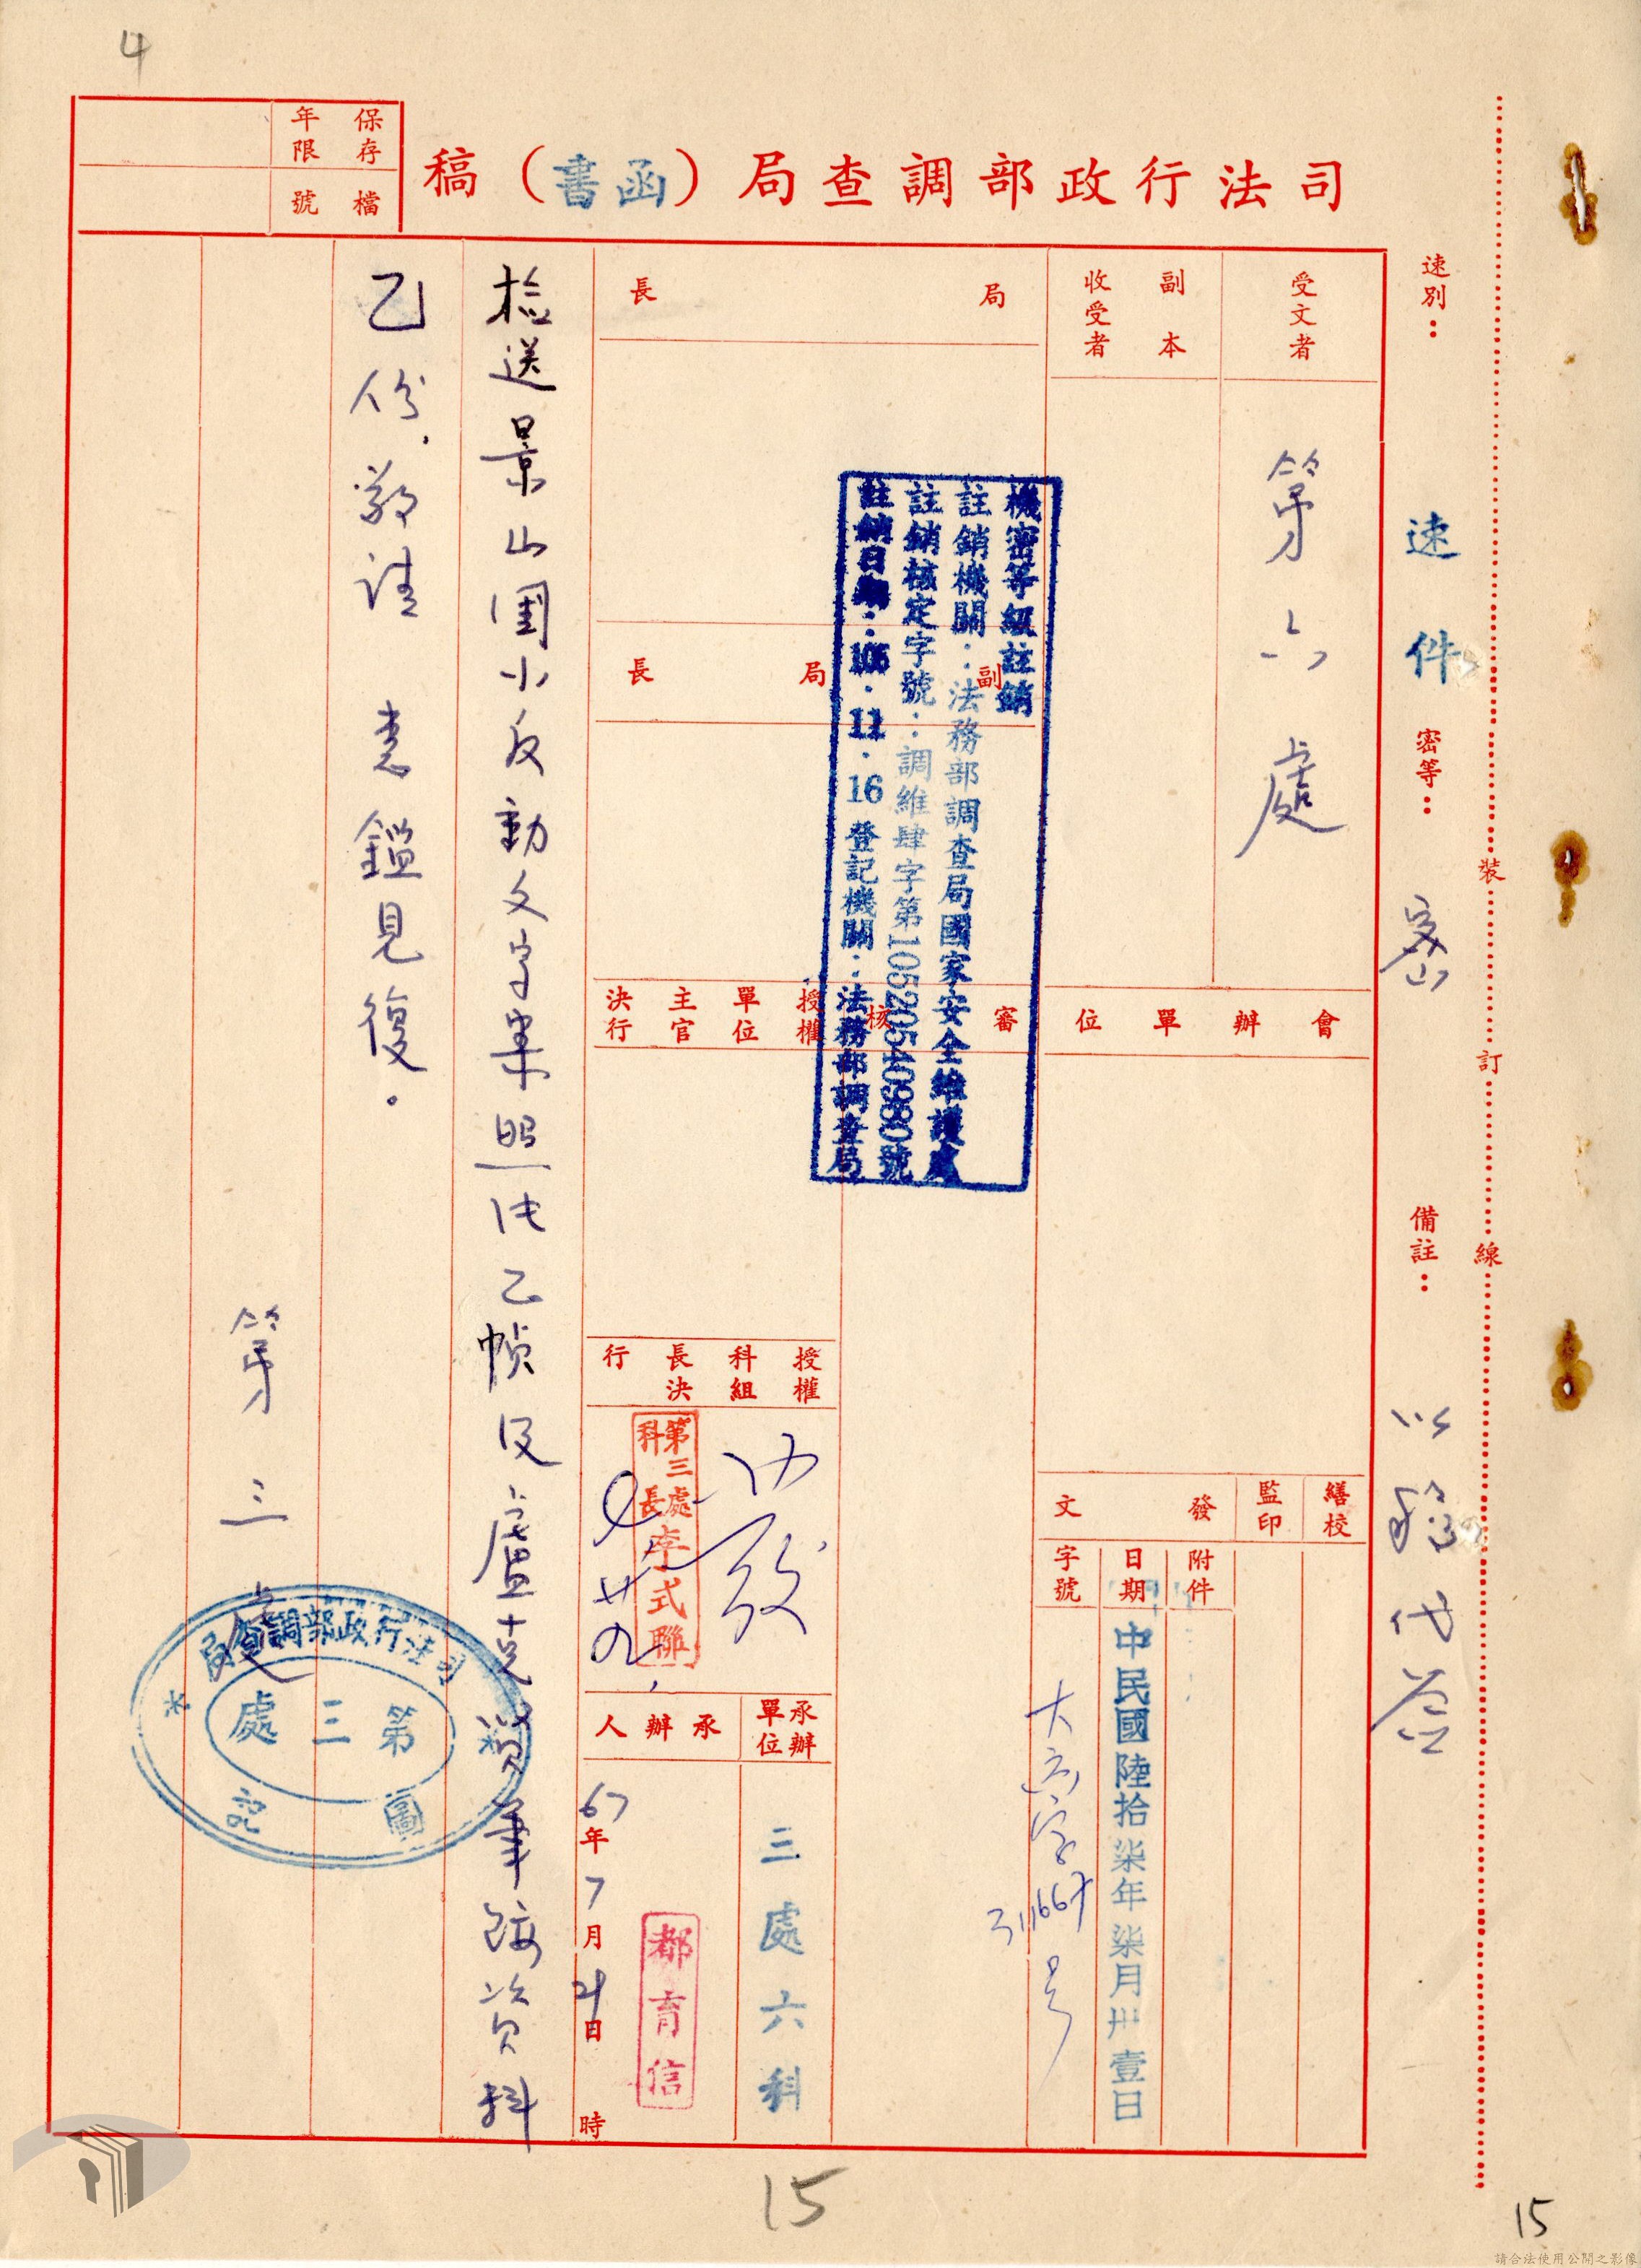 4
司法行政部調查局（函書）稿
保存年限
檔號
速別：速件
密等：密
備註：以稿代簽
裝訂線
受文者
第六處
副本收受者
會辦單位
繕校
監印
發文
附件
日期
中民國陸拾柒年柒月卅壹日
字號
大六字311667号
局長
副局長
審核
機密等級註銷
註銷機關：法務部調查局國家安全維護處
註銷核定字號：調維肆字第10520540980號
註銷日期：105．11．16登記機關：法務部調查局
授權單位主官決行
授權科組長決行
發
第三處科長李式聯
承辦單位
三處六科
承辦人
都育信
67年7月21日時
檢送景山國小反動文字案照片乙幀及盧克毅筆跡資料
乙份，敬請 惠鑑見復。
第三處
司法行政部調查局
第三處
圖記
15
15
請合法使用公開之影像